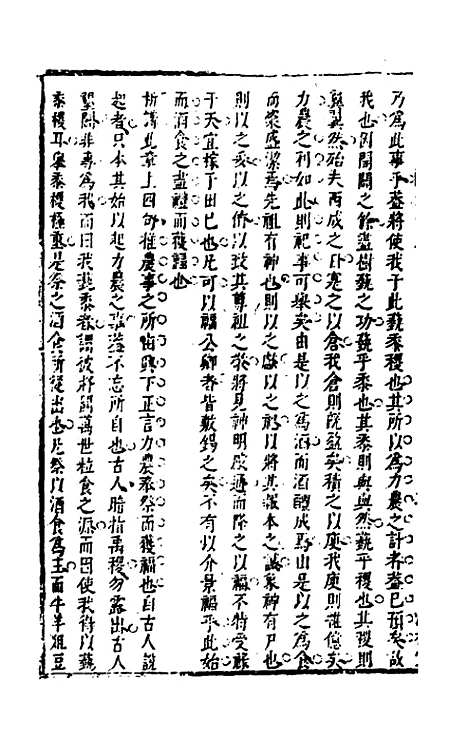 乃為此事乎蓋將使我于此蓺黍稷也其所以為力農之計者蓋已預矣故
我也則闢闢之餘盡樹蓺之功蓺乎黍也其黍則與與然蓺乎稷也其稷則
翼翼然殆夫西成之日塞之以倉我倉則旣盈矣積之以庾我庾則維億矣
力農之利如此則祀事可舉矣由是以之為酒而酒醴成焉由是以之為食
而粢盛潔焉先祖有神也則以之獻以之祀以將其報本之誠象神有尸也
則以之妥以之侑以致其尊祖之敬將見神明感通而降之以福不特受祿
于天宜稼于田已也凡可以福公卿者皆敷錫之矣不有以介景福乎此始
而酒食之盡禮而獲福也
析講此章上四句推農事之所由興下正言力農奉祭而獲福也自古人說
起者只本其始以起力農之意蓋不忘所自也古人暗指禹稷勿露出古人
墾闢非專為我而曰我蓺黍者謂彼抒開萬世粒食之源而因使我得以蓺
黍稷耳舉黍稷極重是祭之酒食所從出也凡祭以酒食為主而牛羊俎豆